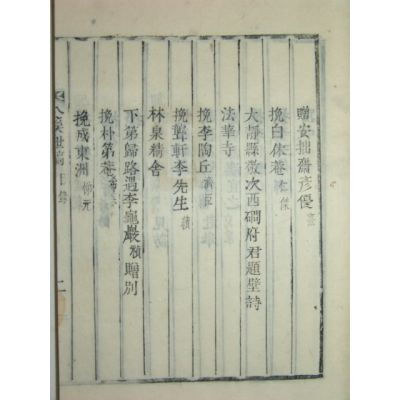 贈安拙齋彦優
挽白休菴仁傑
大靜縣敬次西磵府君題壁詩
法華寺
挽李陶丘
挽聾軒李先生
林泉精舍
下第歸路遇李龜巖禎贈別
挽朴第菴
挽成東洲
二